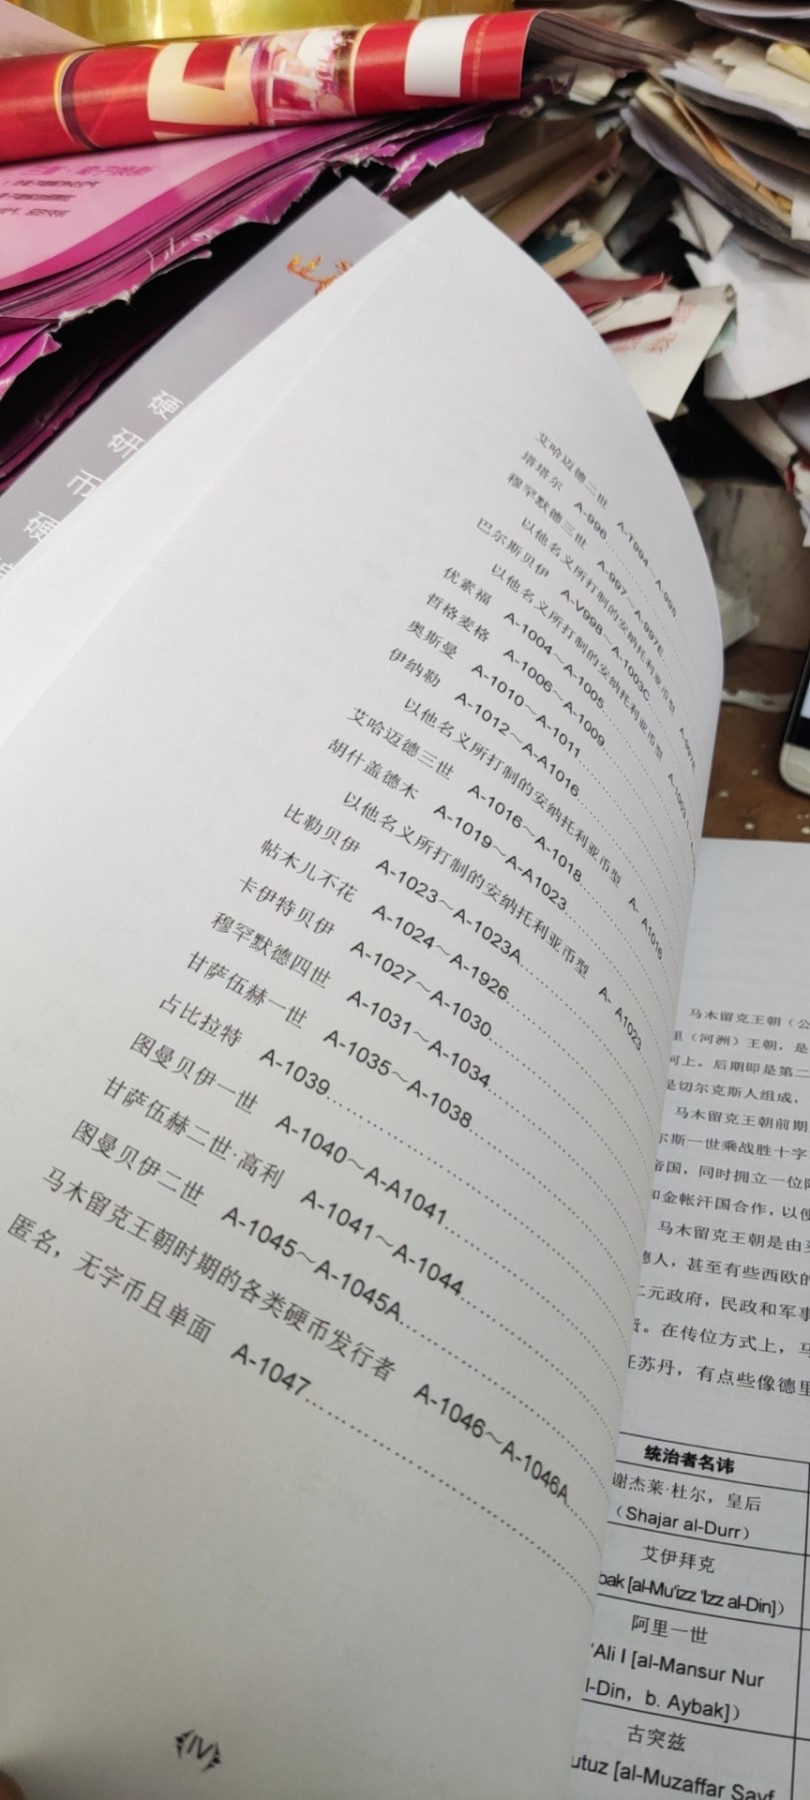 硬
研
币
艾哈迈德二世 A-T994～A-995
塔塔尔 A-996
穆罕默德三世 A-997～A-997E
以他名义所打制的安纳托利亚币型 A-997F
巴尔斯贝伊 A-V998～A-1003C
以他名义所打制的安纳托利亚币型
优素福 A-1004～A-1005
哲格麦格 A-1006～A-1009
奥斯曼 A-1010～A-1011
伊纳勒 A-1012～A-A1016
以他名义所打制的安纳托利亚币型 A- A1016
艾哈迈德三世 A-1016～A-1018
胡什盖德木 A-1019～A-A1023
以他名义所打制的安纳托利亚币型 A- A1023
比勒贝伊 A-1023～A-1023A
帖木儿不花 A-1024～A-1926
卡伊特贝伊 A-1027～A-1030
穆罕默德四世 A-1031～A-1034
甘萨伍赫一世 A-1035～A-1038
占比拉特 A-1039
图曼贝伊一世 A-1040～A-A1041
甘萨伍赫二世·高利 A-1041～A-1044
图曼贝伊二世 A-1045～A-1045A
马木留克王朝时期的各类硬币发行者 A-1046～A-1046A
匿名，无字币且单面 A-1047
IV
马木留克王朝（公
里（河洲）王朝，是
河上。后期即是第二
是切尔克斯人组成，
马木留克王朝前期
尔斯一世乘战胜十字
帝国，同时拥立一位
和金帐汗国合作，以便
马木留克王朝是由
德人，甚至有些西欧的
二元政府，民政和军事
。在传位方式上，马
任苏丹，有点些像德里
统治者名讳
谢杰莱·杜尔，皇后
（Shajar al-Durr）
艾伊拜克
bak [al-Mu'izz 'Izz al-Din]）
阿里一世
'Ali I [al-Mansur Nur
l-Din，b. Aybak]）
古突兹
utuz [al-Muzaffar Sayf